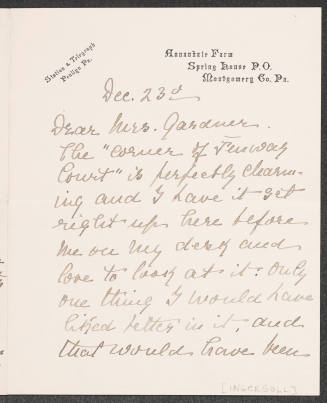 Station & Telegraph
Penllyn Pa.
Annandale Farm
Spring House P.O.
Montgomery Co. Pa.
Dec. 23d
Dear Mrs. Gardner.
The "corner of Fenway
Court" is perfectly charm-
ing and I have it set
right up here before
me on my desk and
love to look at it: only
one thing I would have
liked better in it, and
that would have been
[INGERSOLL]